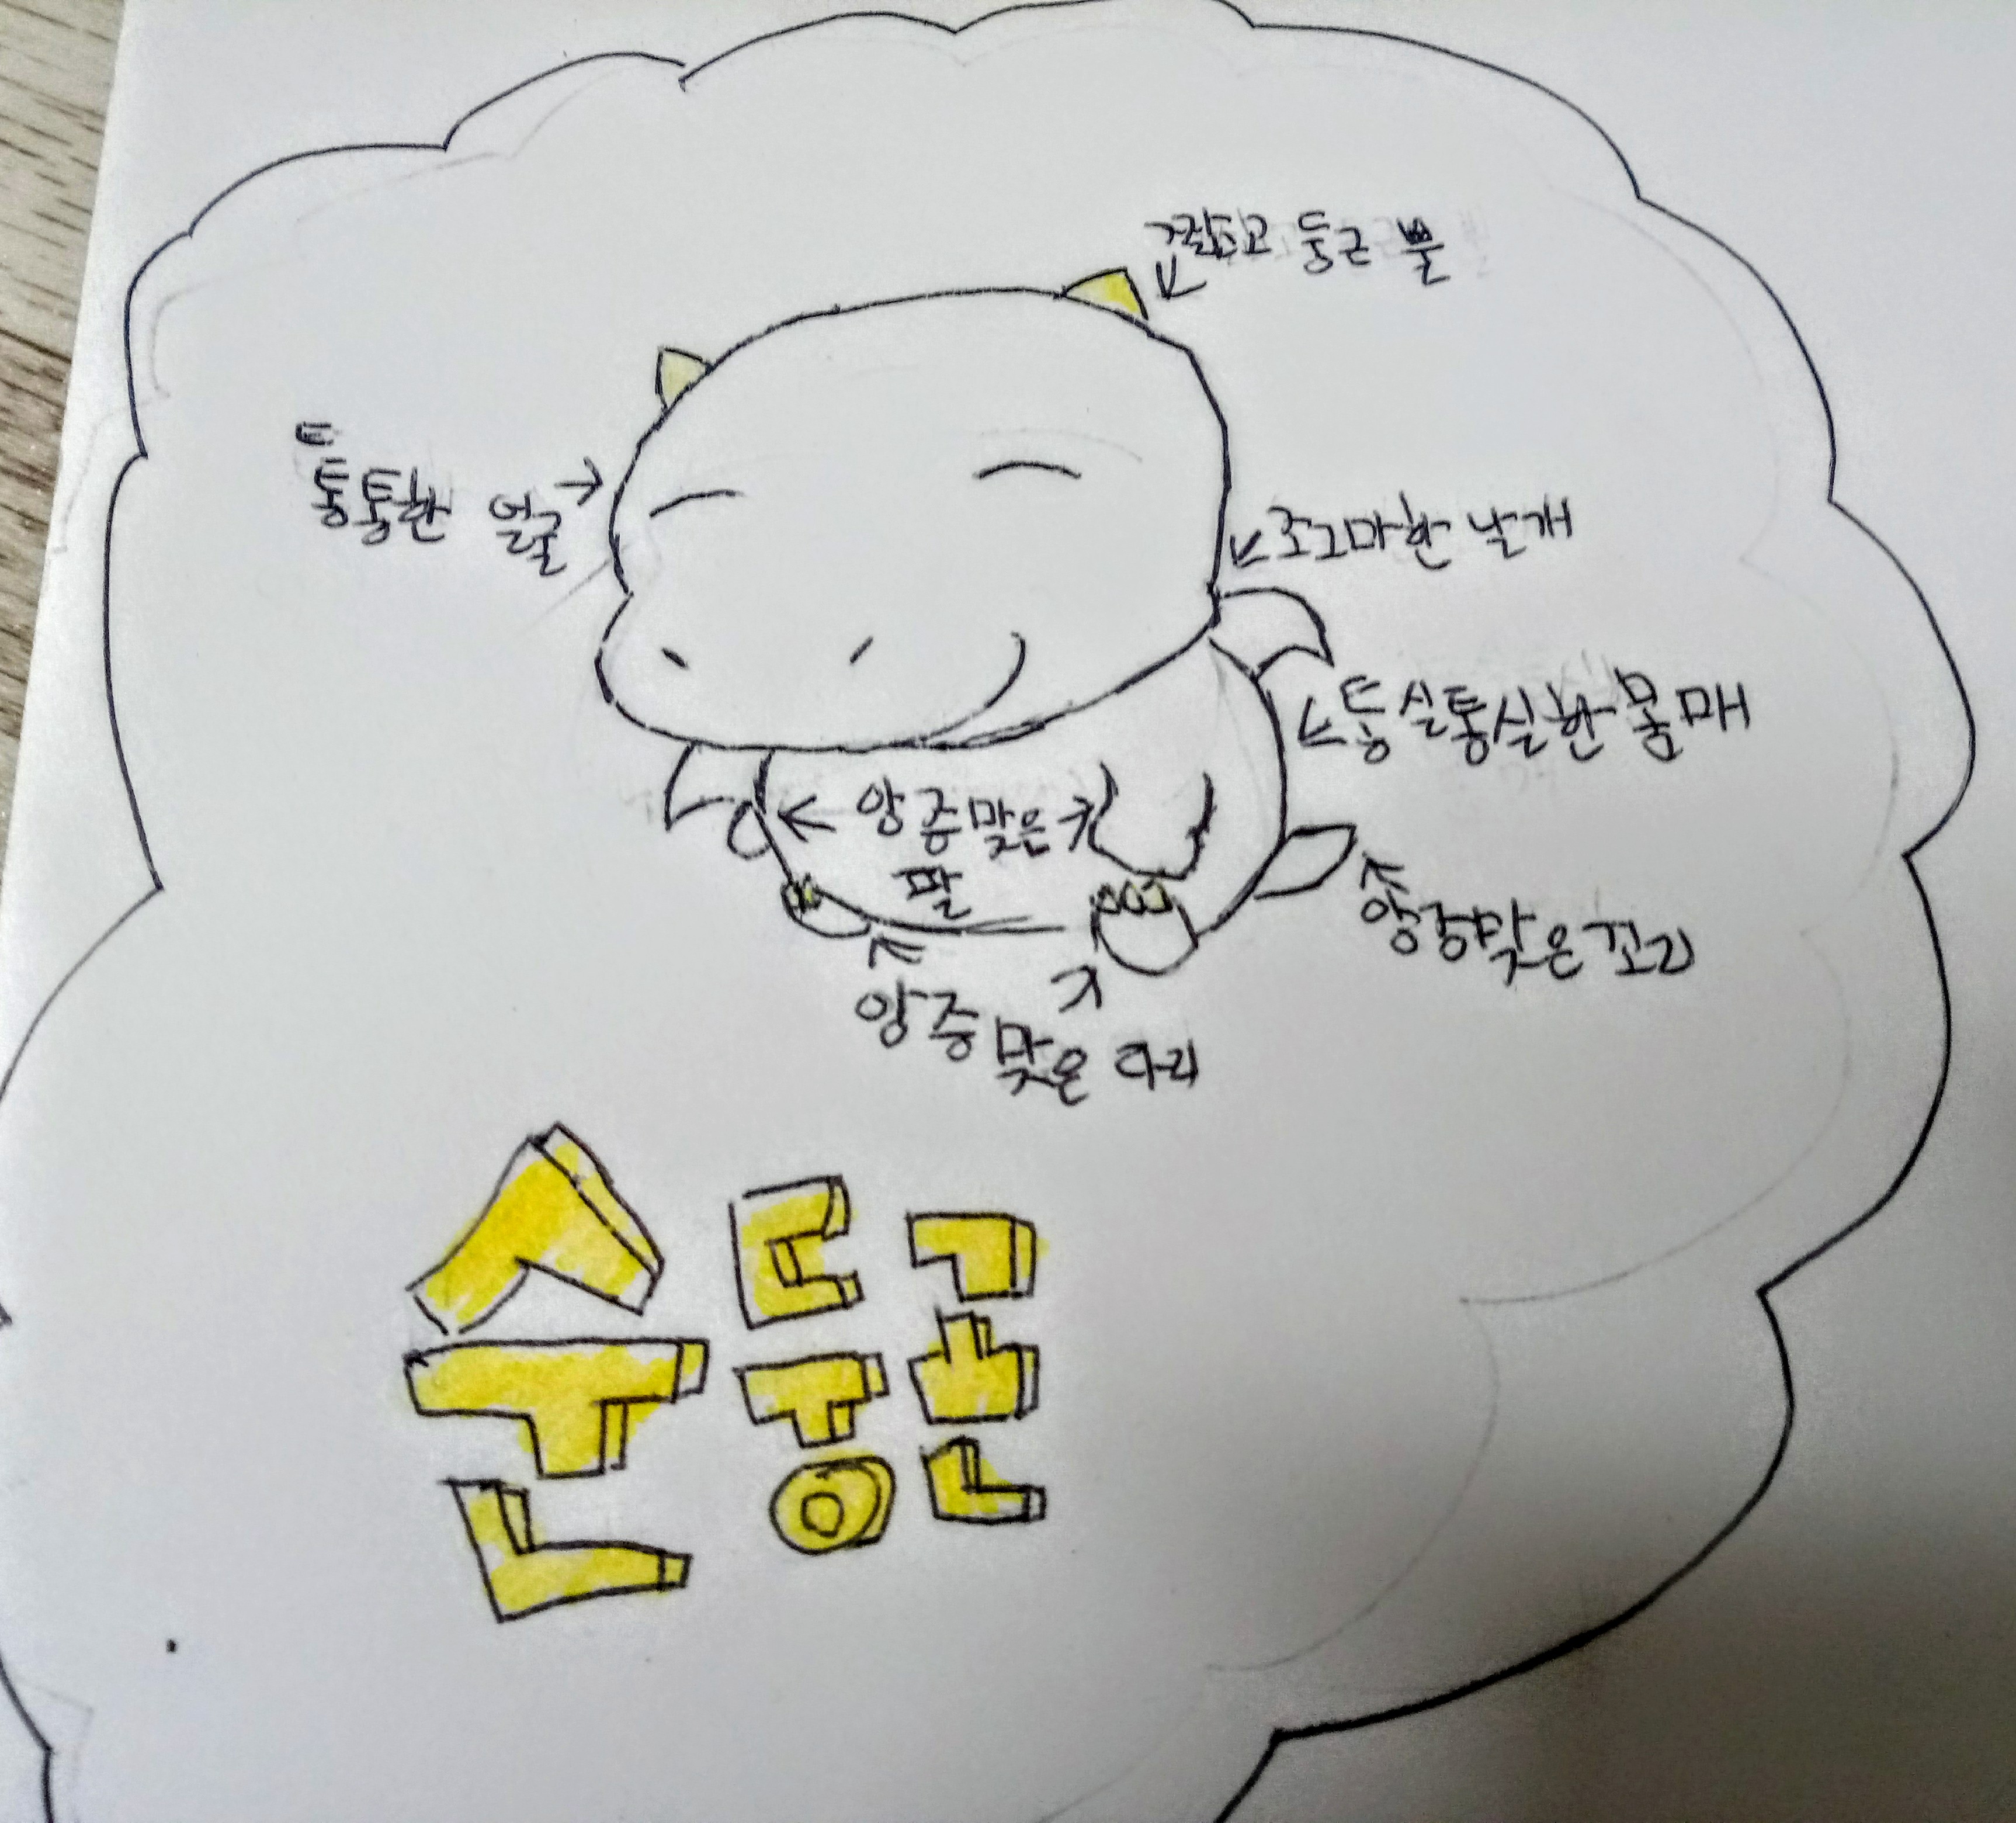 짧고 둥근 뿔
통통한 얼굴
조그마한 날개
통실통실한 몸매
앙증맞은
팔
앙증맞은 꼬리
앙증맞은 다리
순둥곤